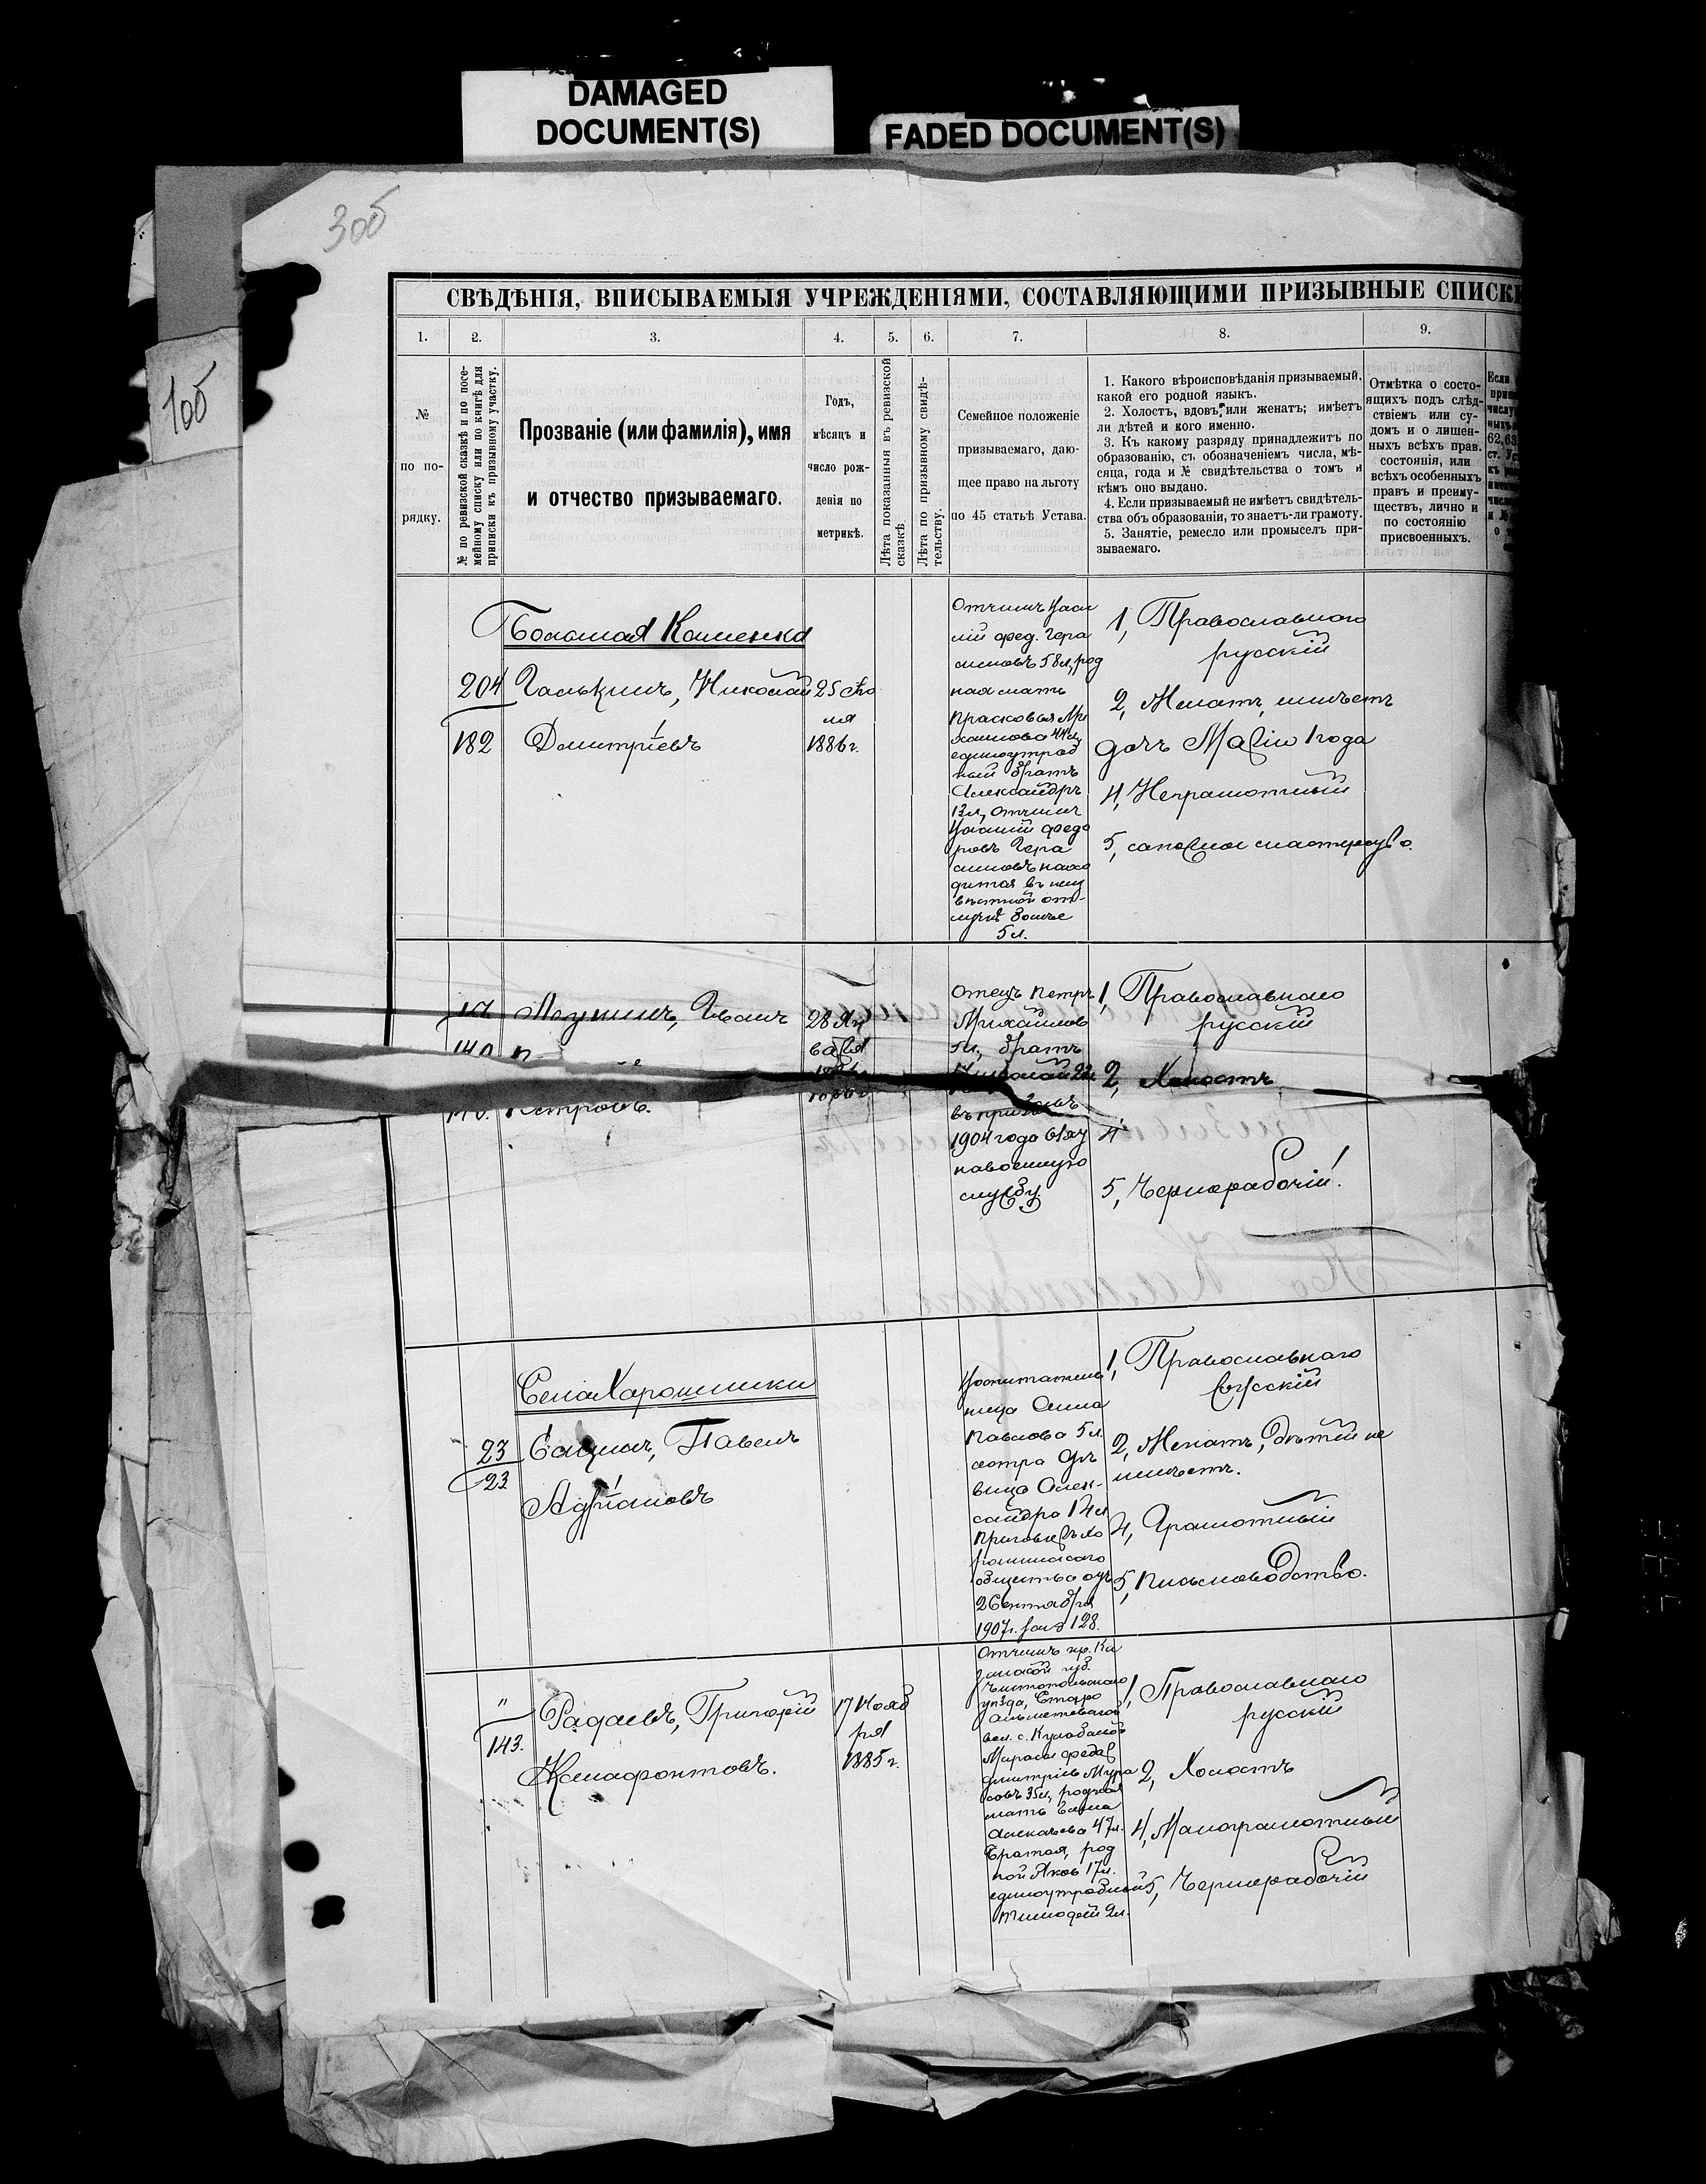 DAMAGED
DOCUMENT(S)
FADED DOCUMENT(S)
3об
10б
СВѢДѢНІЯ, ВПИСЫВАЕМЫЯ УЧРЕЖДЕНІЯМИ, СОСТАВЛЯЮЩИМИ ПРИЗЫВНЫЕ СПИСКИ
1. 2. 3. 4. 5. 6. 7. 8. 9.
№
по по-
рядку.
№ по ревизской сказкѣ и по посе-
мейному списку или по книгѣ для
приписки къ призывному участку.
Прозваніе (или фамилія), имя
и отчество призываемаго.
Годъ,
мѣсяцъ и
число рож-
денія по
метрикѣ.
Лѣта показанныя въ ревизской
сказкѣ.
Лѣта по призывному свидѣ-
тельству.
Семейное положеніе
призываемаго, даю-
щее право на льготу
по 45 статьѣ Устава.
1. Какого вѣроисповѣданія призываемый,
какой его родной языкъ.
2. Холостъ, вдовъ, или женатъ; имѣетъ
ли дѣтей и кого именно.
3. Къ какому разряду принадлежитъ по
образованію, съ обозначеніемъ числа, мѣ-
сяца, года и № свидѣтельства о томъ и
кѣмъ оно выдано.
4. Если призываемый не имѣетъ свидѣтель-
ства объ образованіи, то знаетъ-ли грамоту.
5. Занятіе, ремесло или промыселъ при-
зываемаго.
Отмѣтка о состо-
ящихъ подъ слѣд-
ствіемъ или су-
домъ и о лишен-
ныхъ всѣхъ прав.
состоянія, или
всѣхъ особенныхъ
правъ и преиму-
ществъ, лично и
по состоянію
присвоенныхъ.
Если
62, 63
Большая Каменка
204
182
Галькинъ, Николай
Дмитріевъ
25 Ію
ля
1886 г.
Отчимъ Васи
лій Фед. Гера
симовъ 58 л, род
ная мать
Прасковья Ми
хайлова 44 л,
единоутроб
ный братъ
Александръ
13 л, отчимъ
Василій Федо
ровъ Гера
симовъ нахо
дится въ неиз
вѣстной от-
лучкѣ болѣе
5 л.
1, Православнаго
русскій
2, Женатъ, имѣетъ
дочь Марію 1 года
4, Неграмотный
5, сапожное мастерство.
Иванъ
Петровъ.
28 Ян
варя
1886 г
Отецъ Петръ
Михайлов
братъ
Николай 22 л
въ призывъ
1904 года
на военную
службу
1, Православнаго
русскій
2, Холостъ
4
5, Чернорабочій.
Села Хорошенки
23
23
Павелъ
Адріановъ
Воспитатель
ница Анна
Павлова 5 л
сестра Дѣ
вица Алек-
сандра 14 л
Приговоръ Хо
рошенскаго
общества отъ
2 Сентября
1907 г. за № 128.
1, Православнаго
русскій
2, Женатъ, дѣтей не
имѣетъ.
4, Грамотный
5, Письмоводство.
"
143.
Радаевъ, Григорій
Ксенофонтовъ.
17 Нояб
ря
1885 г.
Отчимъ кр. Ка
занской губ.
Чистопольскаго
уѣзда, Старо
вол. с.
Дмитріевъ Мура
совъ 35 л, родная
мать
Алексѣева 47 л.
Братья, род
ной Яков 17 л.
единоутробный
Тимофей 2 л.
1, Православнаго
русскій
2, Холостъ
4, Малограмотный
5, Чернорабочій